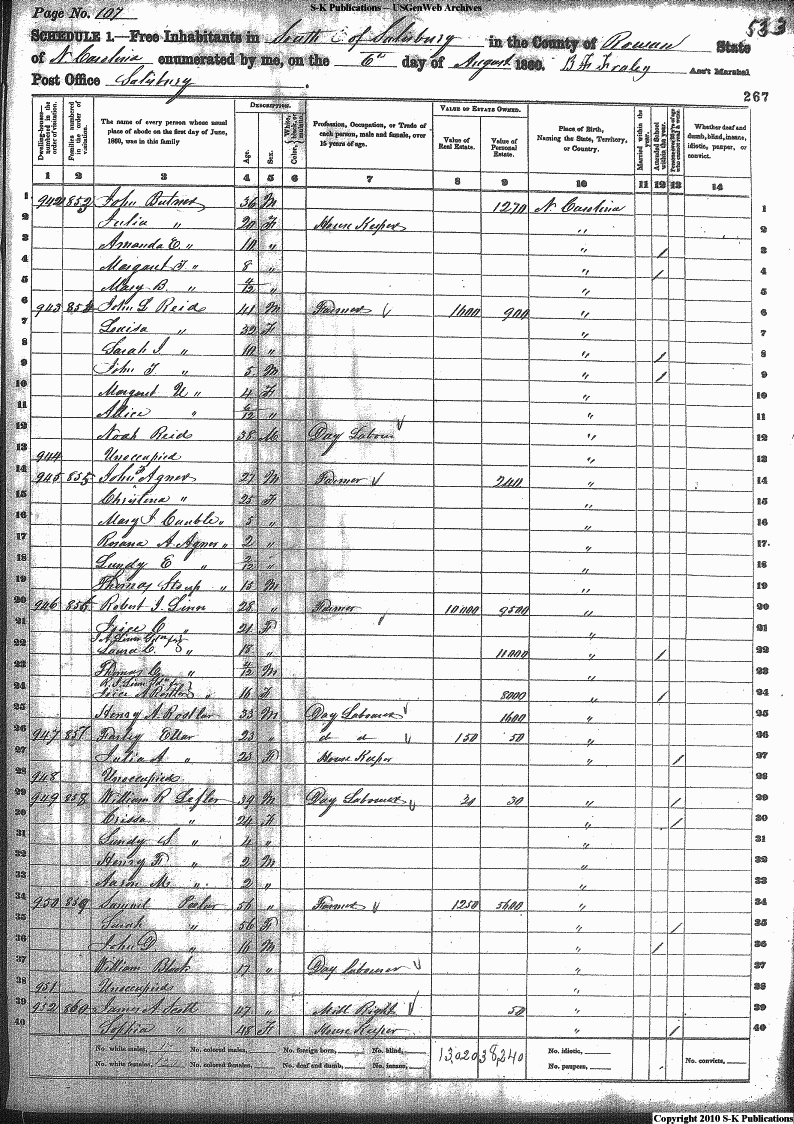 S-K Publications – USGenWeb Archives
Page No. 107
533
SCHEDULE 1.—Free Inhabitants in South C of Salisbury in the County of Rowan State
of N Carolina enumerated by me, on the 6th day of August 1860. B F Fraley Ass't Marshal
Post Office Salisbury
267
Dwelling-houses numbered in the order of visitation.
Families numbered in the order of visitation.
The name of every person whose usual place of abode on the first day of June, 1860, was in this family
DESCRIPTION.
Age.
Sex.
Color, White, black, or mulatto.
Profession, Occupation, or Trade of each person, male and female, over 15 years of age.
VALUE OF ESTATE OWNED.
Value of Real Estate.
Value of Personal Estate.
Place of Birth, Naming the State, Territory, or Country.
Married within the year.
Attended School within the year.
Whether deaf and dumb, blind, insane, idiotic, pauper, or convict.
1 2 3 4 5 6 7 8 9 10 11 12 13 14
1 942 853 John Butner 36 M 1270 N Carolina 1
2 Julia " 20 F House Keeper " 2
3 Amanda E " 10 " " / 3
4 Margaret " 8 " " / 4
5 Mary B " 4/12 " " 5
6 943 854 John L Reid 41 M Farmer 1600 900 " 6
7 Louisa " 32 F " 7
8 Sarah J " 10 " " / 8
9 John " 5 M " / 9
10 Margaret " 4 F " 10
11 Allice " /12 " " 11
12 Noah Reid 38 M Day Labour " 12
13 944 Unoccupied " 13
14 945 855 John Agner 27 M Farmer 240 " 14
15 Christena " 25 F " 15
16 Mary J Cauble " 5 " " 16
17 Rosana A Agner " 2 " " 17
18 Lundy E " /12 " " 18
19 Thomas " 15 M " 19
20 946 856 Robert J. Linn 28 " Farmer 10000 9500 " 20
21 Joice C " 21 F " 21
22 Laura C. " 18 " 11000 " / 22
23 Thomas " /12 M " 23
24 Joice A " 16 F 8000 " / 24
25 Henry A 33 M Day Labourer 1600 " 25
26 947 857 Farley Ellar 23 " d d 150 50 " 26
27 Julia A " 25 F House Keeper " / 27
28 948 Unoccupied 28
29 949 858 William R Lefler 39 M Day Labourer 30 " / 29
30 Crissa " 24 F " / 30
31 Lundy S " 4 " " 31
32 Henry F " 2 M " 32
33 Aaron M " 2 " " 33
34 950 859 Samuel Peeler 56 " Farmer 1250 5600 " 34
35 Sarah " 56 F " / 35
36 John D " 16 M " / 36
37 William Black 17 " Day Labourer " 37
38 951 Unoccupied " 38
39 952 860 James A Scott 47 " Mill Right 50 " 39
40 Sophia " 48 F House Keeper " / 40
No. white males, No. colored males, No. foreign born, No. blind, 13,020 38,240 No. idiotic, No. convicts,
No. white females, No. colored females, No. deaf and dumb, No. insane, No. paupers,
Copyright 2010 S-K Publications